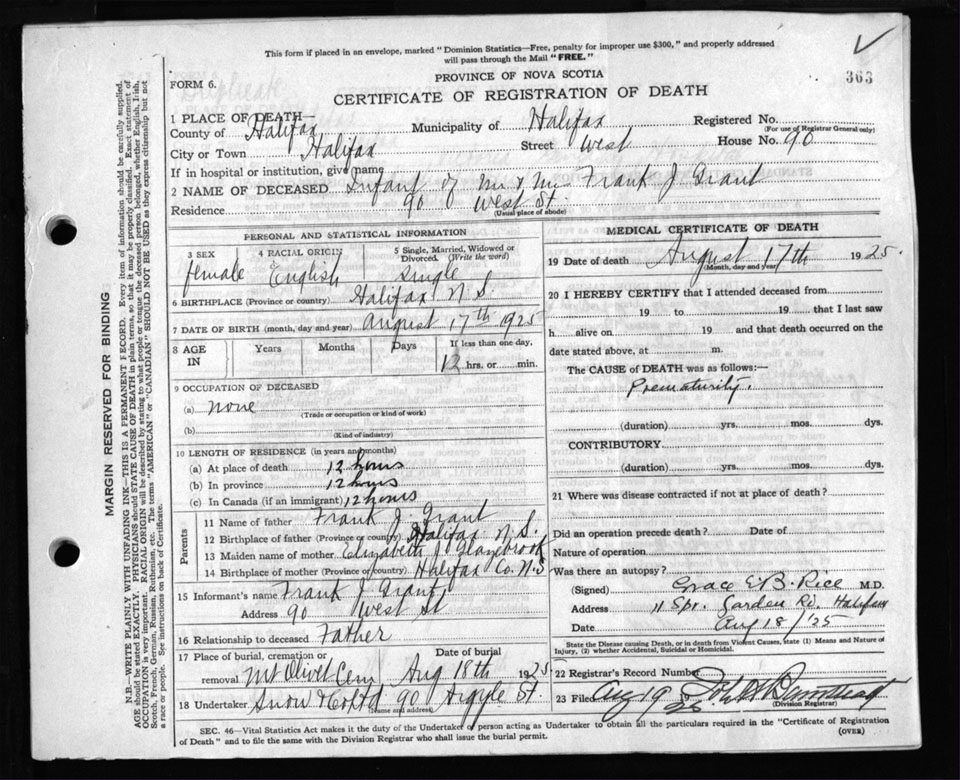 This form if placed in an envelope, marked "Dominion Statistics—Free, penalty for improper use $300," and properly addressed
will pass through the Mail "FREE."
363
PROVINCE OF NOVA SCOTIA
FORM 6.
CERTIFICATE OF REGISTRATION OF DEATH
1 PLACE OF DEATH—
County of Halifax Municipality of Halifax Registered No.
(For use of Registrar General only)
City or Town Halifax Street West House No. 90
If in hospital or institution, give name
2 NAME OF DECEASED Infant of Mr & Mrs Frank J Grant
Residence 90 West St.
(Usual place of abode)
PERSONAL AND STATISTICAL INFORMATION
3 SEX 4 RACIAL ORIGIN 5 Single, Married, Widowed or Divorced. (Write the word)
female English Single
6 BIRTHPLACE (Province or country) Halifax N.S.
7 DATE OF BIRTH (month, day and year) August 17th 1925
8 AGE IN Years Months Days If less than one day,
12 hrs. or min.
9 OCCUPATION OF DECEASED
(a) none
(Trade or occupation or kind of work)
(b)
(Kind of industry)
10 LENGTH OF RESIDENCE (in years and months)
(a) At place of death 12 hours
(b) In province 12 hours
(c) In Canada (if an immigrant) 12 hours
Parents
11 Name of father Frank J. Grant
12 Birthplace of father (Province or country) Halifax N.S.
13 Maiden name of mother Elizabeth J Glazebrook
14 Birthplace of mother (Province or country) Halifax Co. N.S
15 Informant's name Frank J Grant
Address 90 West St
16 Relationship to deceased Father
17 Place of burial, cremation or removal Date of burial
Mt Olivet Cem Aug 18th 1925
18 Undertaker Snow & Co Ltd 90 Argyle St.
(Name and address)
MEDICAL CERTIFICATE OF DEATH
19 Date of death August 17th 1925.
(Month, day and year)
20 I HEREBY CERTIFY that I attended deceased from
19 to 19 that I last saw
h alive on 19 and that death occurred on the
date stated above, at m.
The CAUSE of DEATH was as follows:—
Prematurity.
(duration) yrs. mos. dys.
CONTRIBUTORY
(duration) yrs. mos. dys.
21 Where was disease contracted if not at place of death?
Did an operation precede death? Date of
Nature of operation
Was there an autopsy?
(Signed) Grace E.B. Rice M.D.
Address 11 Spr. Garden Rd. Halifax
Date Aug 18/25
State the Disease causing Death, or in death from Violent Causes, state (1) Means and Nature of
Injury, (2) whether Accidental, Suicidal or Homicidal.
22 Registrar's Record Number
23 Filed Aug 19 25
(Division Registrar)
SEC. 46—Vital Statistics Act makes it the duty of the Undertaker or person acting as Undertaker to obtain all the particulars required in the "Certificate of Registration
of Death" and to file the same with the Division Registrar who shall issue the burial permit.
(OVER)
MARGIN RESERVED FOR BINDING
N.B.—WRITE PLAINLY WITH UNFADING INK—THIS IS A PERMANENT RECORD. Every item of information should be carefully supplied.
AGE should be stated EXACTLY. PHYSICIANS should STATE CAUSE OF DEATH in plain terms, so that it may be properly classified. Exact statement of
OCCUPATION is very important. RACIAL ORIGIN will be described by stating to what people or tongue the deceased person belonged, whether English, Irish,
Scotch, French, German, Russian, Ruthenian, etc. The terms "AMERICAN" or "CANADIAN" SHOULD NOT BE USED as they express citizenship but not
a race or people. See instructions on back of Certificate.